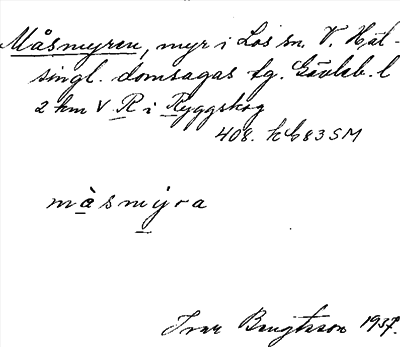 Måsmyren, myr i Los sn. V. Häl-
singl. domsagas tg. Gävleb. l
2 km V R i Ryggskog
408. h b 83 SM
màsmyra
Ivar Bengtsson 1937.